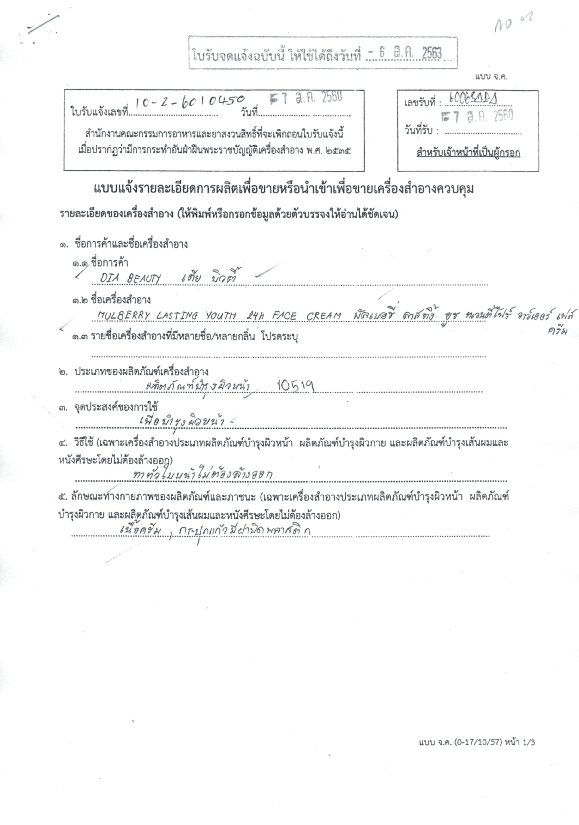 ใบรับจดแจ้งฉบับนี้ ให้ใช้ได้ถึงวันที่ - 6 ส.ค. 2563
แบบ จ.ค.
ใบรับแจ้งเลขที่ 10-2-6010450 วันที่ 7 ส.ค. 2560
สำนักงานคณะกรรมการอาหารและยาสงวนสิทธิ์ที่จะเพิกถอนใบรับแจ้งนี้
เมื่อปรากฏว่ามีการกระทำอันฝ่าฝืนพระราชบัญญัติเครื่องสำอาง พ.ศ. ๒๕๓๕
เลขรับที่ :
วันที่รับ : 7 ส.ค. 2560
สำหรับเจ้าหน้าที่เป็นผู้กรอก
แบบแจ้งรายละเอียดการผลิตเพื่อขายหรือนำเข้าเพื่อขายเครื่องสำอางควบคุม
รายละเอียดของเครื่องสำอาง (ให้พิมพ์หรือกรอกข้อมูลด้วยตัวบรรจงให้อ่านได้ชัดเจน)
๑. ชื่อการค้าและชื่อเครื่องสำอาง
๑.๑ ชื่อการค้า
DIA BEAUTY เดีย บิวตี้
๑.๒ ชื่อเครื่องสำอาง
MULBERRY LASTING YOUTH 24h FACE CREAM มัลเบอร์รี่ ลาสติ้ง ยูธ ทเวนตี้โฟร์ เฟส
ครีม
๑.๓ รายชื่อเครื่องสำอางที่มีหลายชื่อ/หลายกลิ่น โปรดระบุ
๒. ประเภทของผลิตภัณฑ์เครื่องสำอาง
ผลิตภัณฑ์บำรุงผิวหน้า 10519
๓. จุดประสงค์ของการใช้
เพื่อบำรุงผิวหน้า
๔. วิธีใช้ (เฉพาะเครื่องสำอางประเภทผลิตภัณฑ์บำรุงผิวหน้า ผลิตภัณฑ์บำรุงผิวกาย และผลิตภัณฑ์บำรุงเส้นผมและ
หนังศีรษะโดยไม่ต้องล้างออก)
ทาทั่วใบหน้าไม่ต้องล้างออก
๕. ลักษณะทางกายภาพของผลิตภัณฑ์และภาชนะ (เฉพาะเครื่องสำอางประเภทผลิตภัณฑ์บำรุงผิวหน้า ผลิตภัณฑ์
บำรุงผิวกาย และผลิตภัณฑ์บำรุงเส้นผมและหนังศีรษะโดยไม่ต้องล้างออก)
เนื้อครีม , กระปุกแก้วมีฝาปิดพลาสติก
แบบ จ.ค. (0-17/10/57) หน้า 1/3